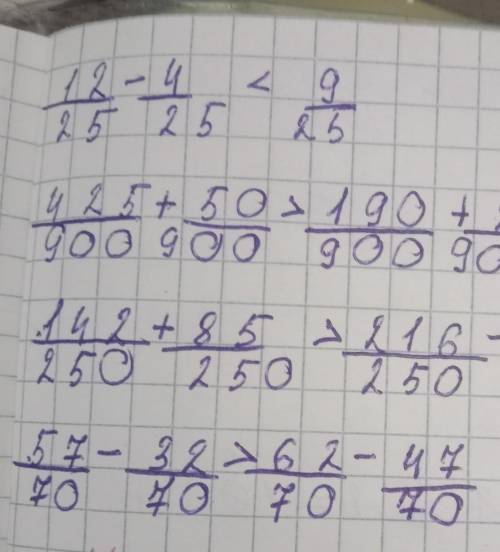 12/25 - 4/25 < 9/25
425/900 + 50/900 > 190/900 + /90
142/250 + 85/250 > 216/250 -
57/70 - 32/70 > 62/70 - 47/70